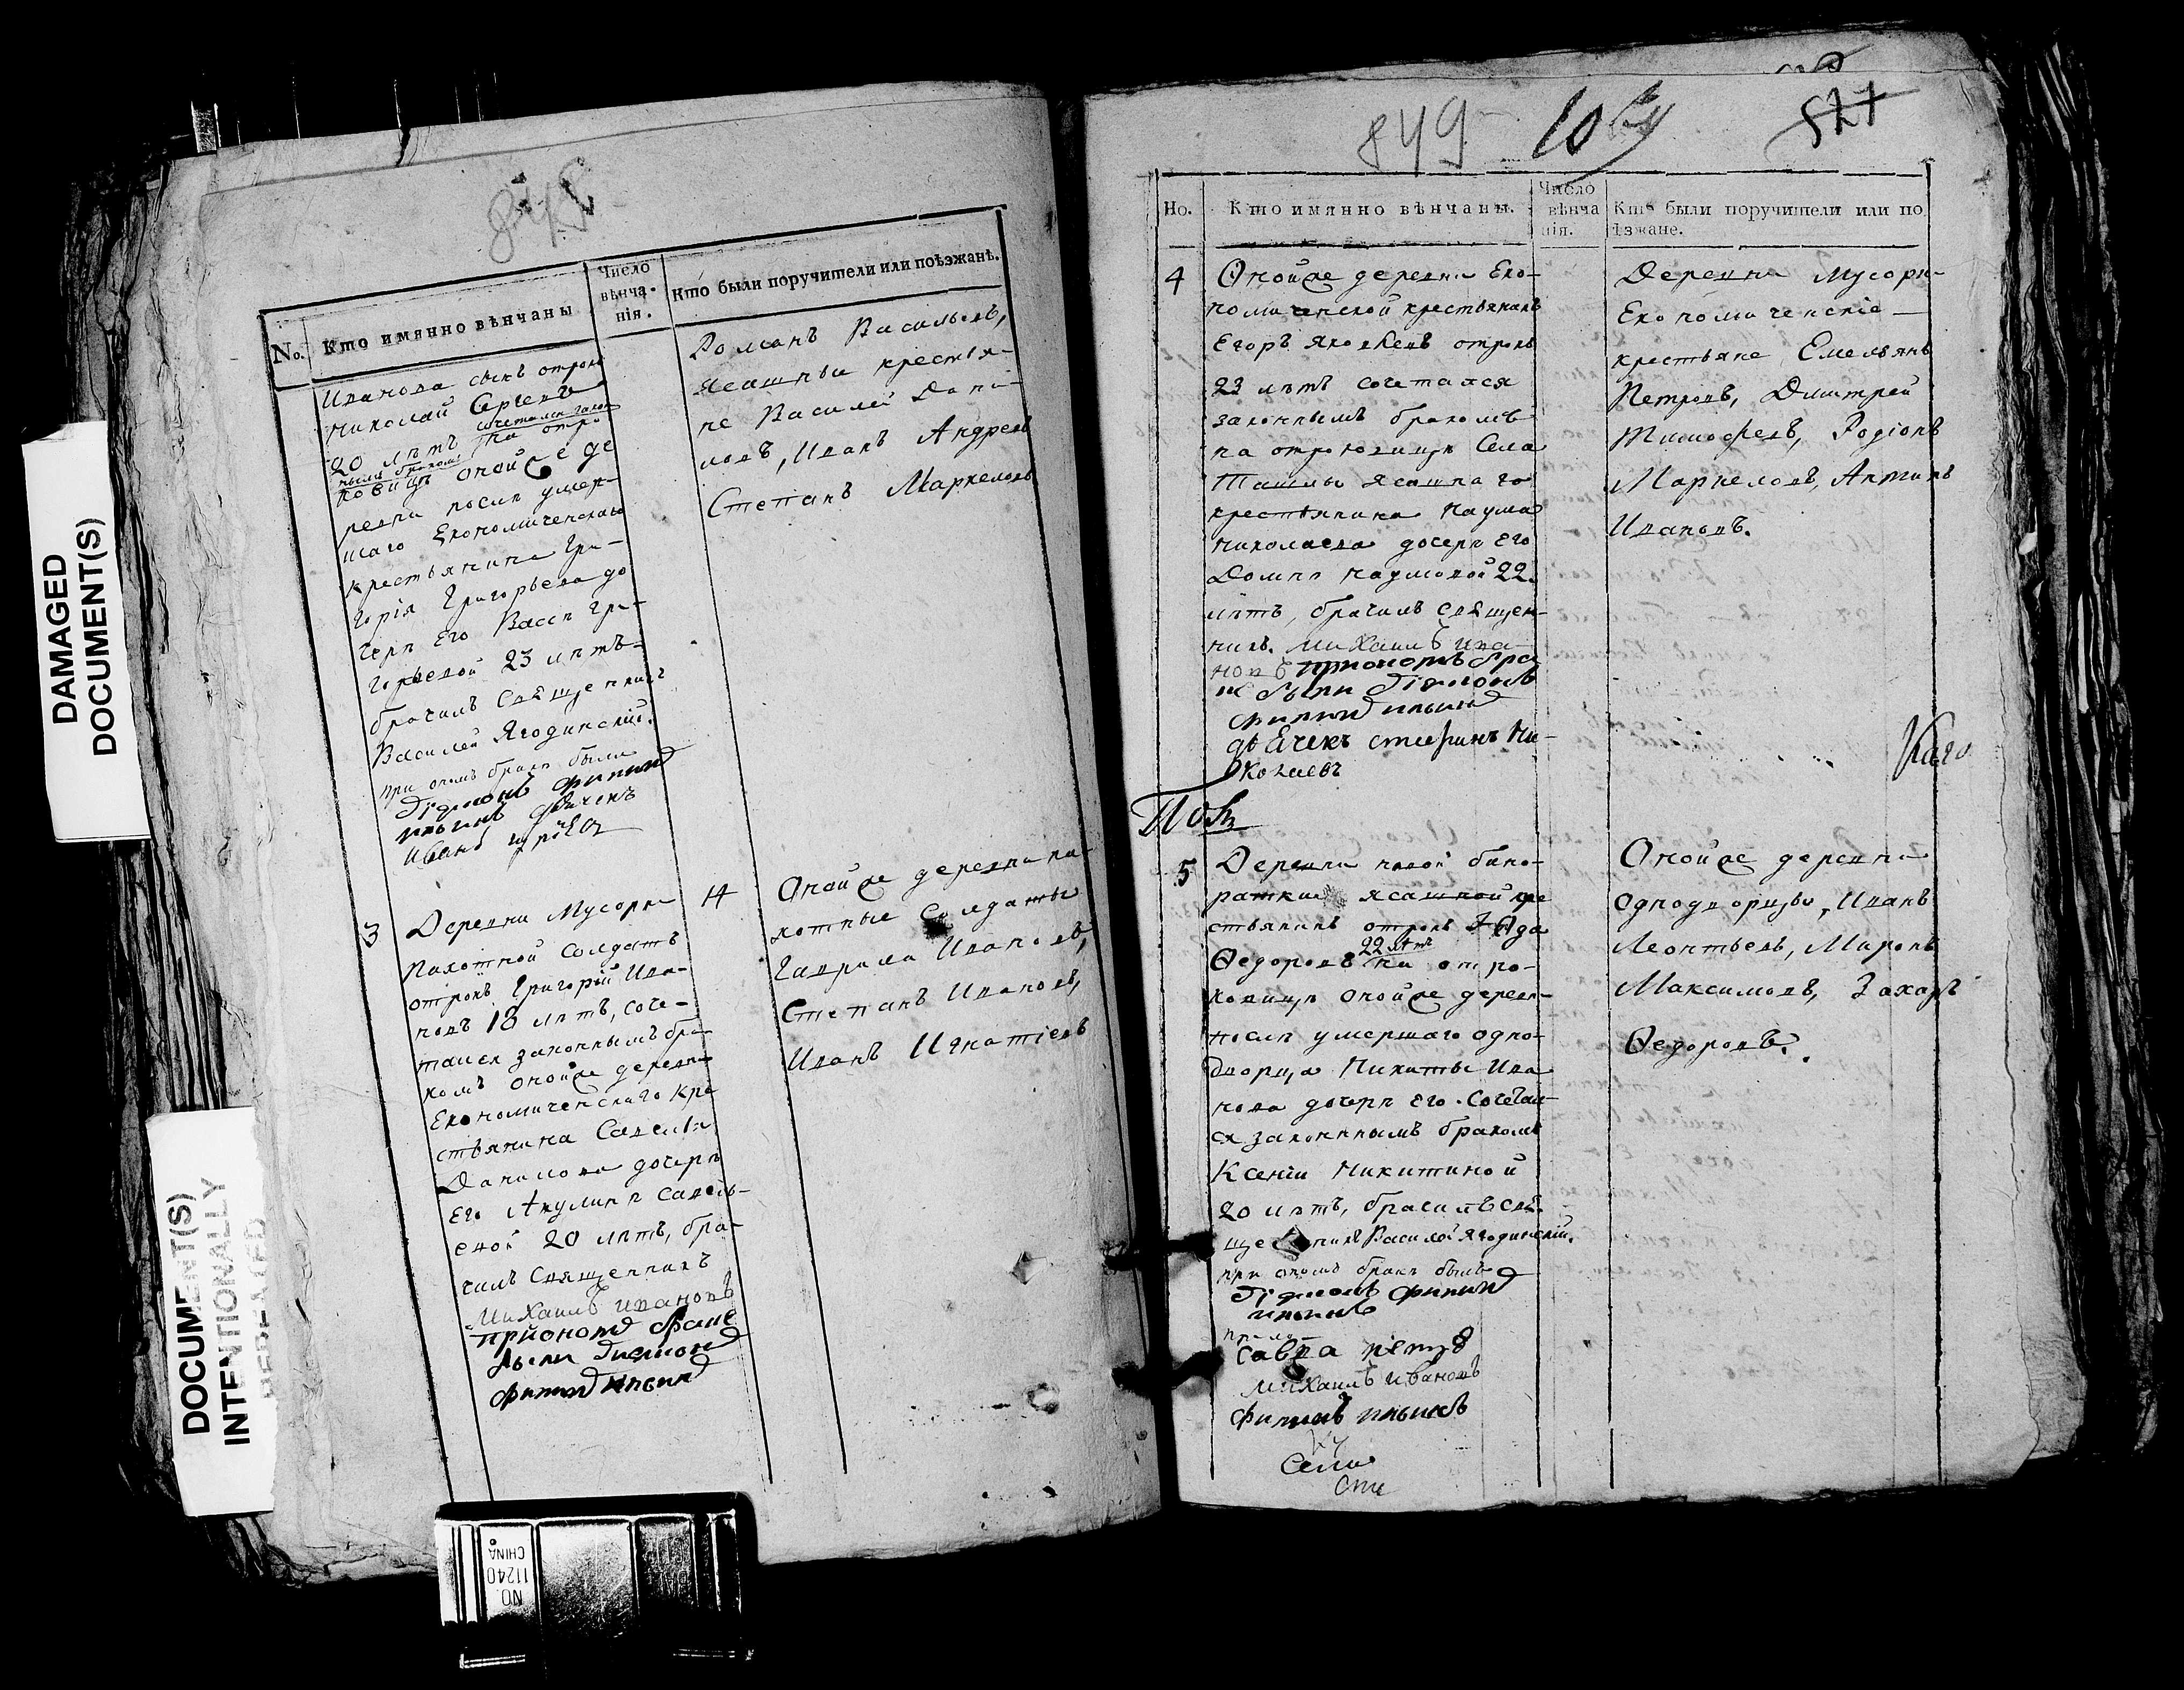 848
No.
Кто имянно вѣнчаны
Число
вѣнча-
нія.
Кто были поручители или поѣзжанѣ.
Иванова сынъ отрокъ
Николай Сергеевъ
20 лѣтъ сочетался закон
нымъ бракомъ на отро
ковицѣ оной же де
ревни послѣ умер-
шаго Економическаго
крестьянина Гри-
горія Григорьева до
чери Его Вассѣ Гри-
горьевой 23 лѣтъ
брачилъ Священникъ
Василей Ягодинскій.
при ономъ бракѣ были
Діяконъ Филипъ
Ильинъ дьячекъ
Иванъ
Романъ Васильевъ,
Ясашныи крестья-
не Василей Дани-
ловъ, Иванъ Андреевъ
Степанъ Маркеловъ
3
Деревни Мусорки
Пахотной Солдатъ
отрокъ Григорій Ива-
новъ 18 лѣтъ, соче-
тался законнымъ бра-
комъ оной же деревни
Економическаго Кре
стьянина Савелья
Данилова дочерѣ
Его Акулинѣ Савель-
евой 20 лѣтъ, бра-
чилъ Священникъ
Михаилъ Ивановъ
при ономъ браке
были Диякон
Филипъ Ильинъ
14
Оной же деревни па-
хотные Солдаты
Гаврила Ивановъ,
Степанъ Ивановъ,
Иванъ Игнатіевъ
849
521
Но.
Кто имянно вѣнчаны.
Число
вѣнча
нія.
Кто были поручители или по
ѣзжане.
4
Оной же деревни Еко-
номической крестьянинъ
Егоръ Яковлевъ отрокъ
23 лѣтъ сочетался
законнымъ бракомъ
на отроковицѣ Села
Ташлы Ясашнаго
крестьянина Наума
Николаева дочерѣ Его
Домнѣ Наумовой 22.
лѣтъ, брачилъ Священ-
никъ. Михаилъ Ива-
новъ при ономъ бра
ке были Діяконъ
Филипъ Ильинъ
дьячекъ Стефанъ Ни-
колаевъ
Деревни Мусорки
Економическіе
крестьяне Емельянъ
Петровъ, Дмитрей
Тимофеевъ, Родіонъ
Маркеловъ, Антипъ
Ивановъ.
5
Деревни новой бино-
ратки ясашной кре
стьянинъ отрокъ
Ѳедоровъ 22 лѣтъ на отро-
ковицѣ оной же деревни
послѣ умершаго одно-
дворца Никиты Ива
нова дочерѣ Его. Сочетал-
ся законнымъ бракомъ
Ксеніи Никитиной
20 лѣтъ, брачилъ Свя-
щенникъ Василей Ягодинскій.
при ономъ бракѣ былъ
Діяконъ Филипъ
Ильинъ
Михаилъ Ивановъ
Филипъ Ильинъ
Оной же деревни
Однодворцы, Иванъ
Леонтьевъ, Миронъ
Максимовъ, Захаръ
Ѳедоровъ.
DAMAGED
DOCUMENT(S)
DOCUMENT(S)
INTENTIONALLY
NO. 11240
CHINA